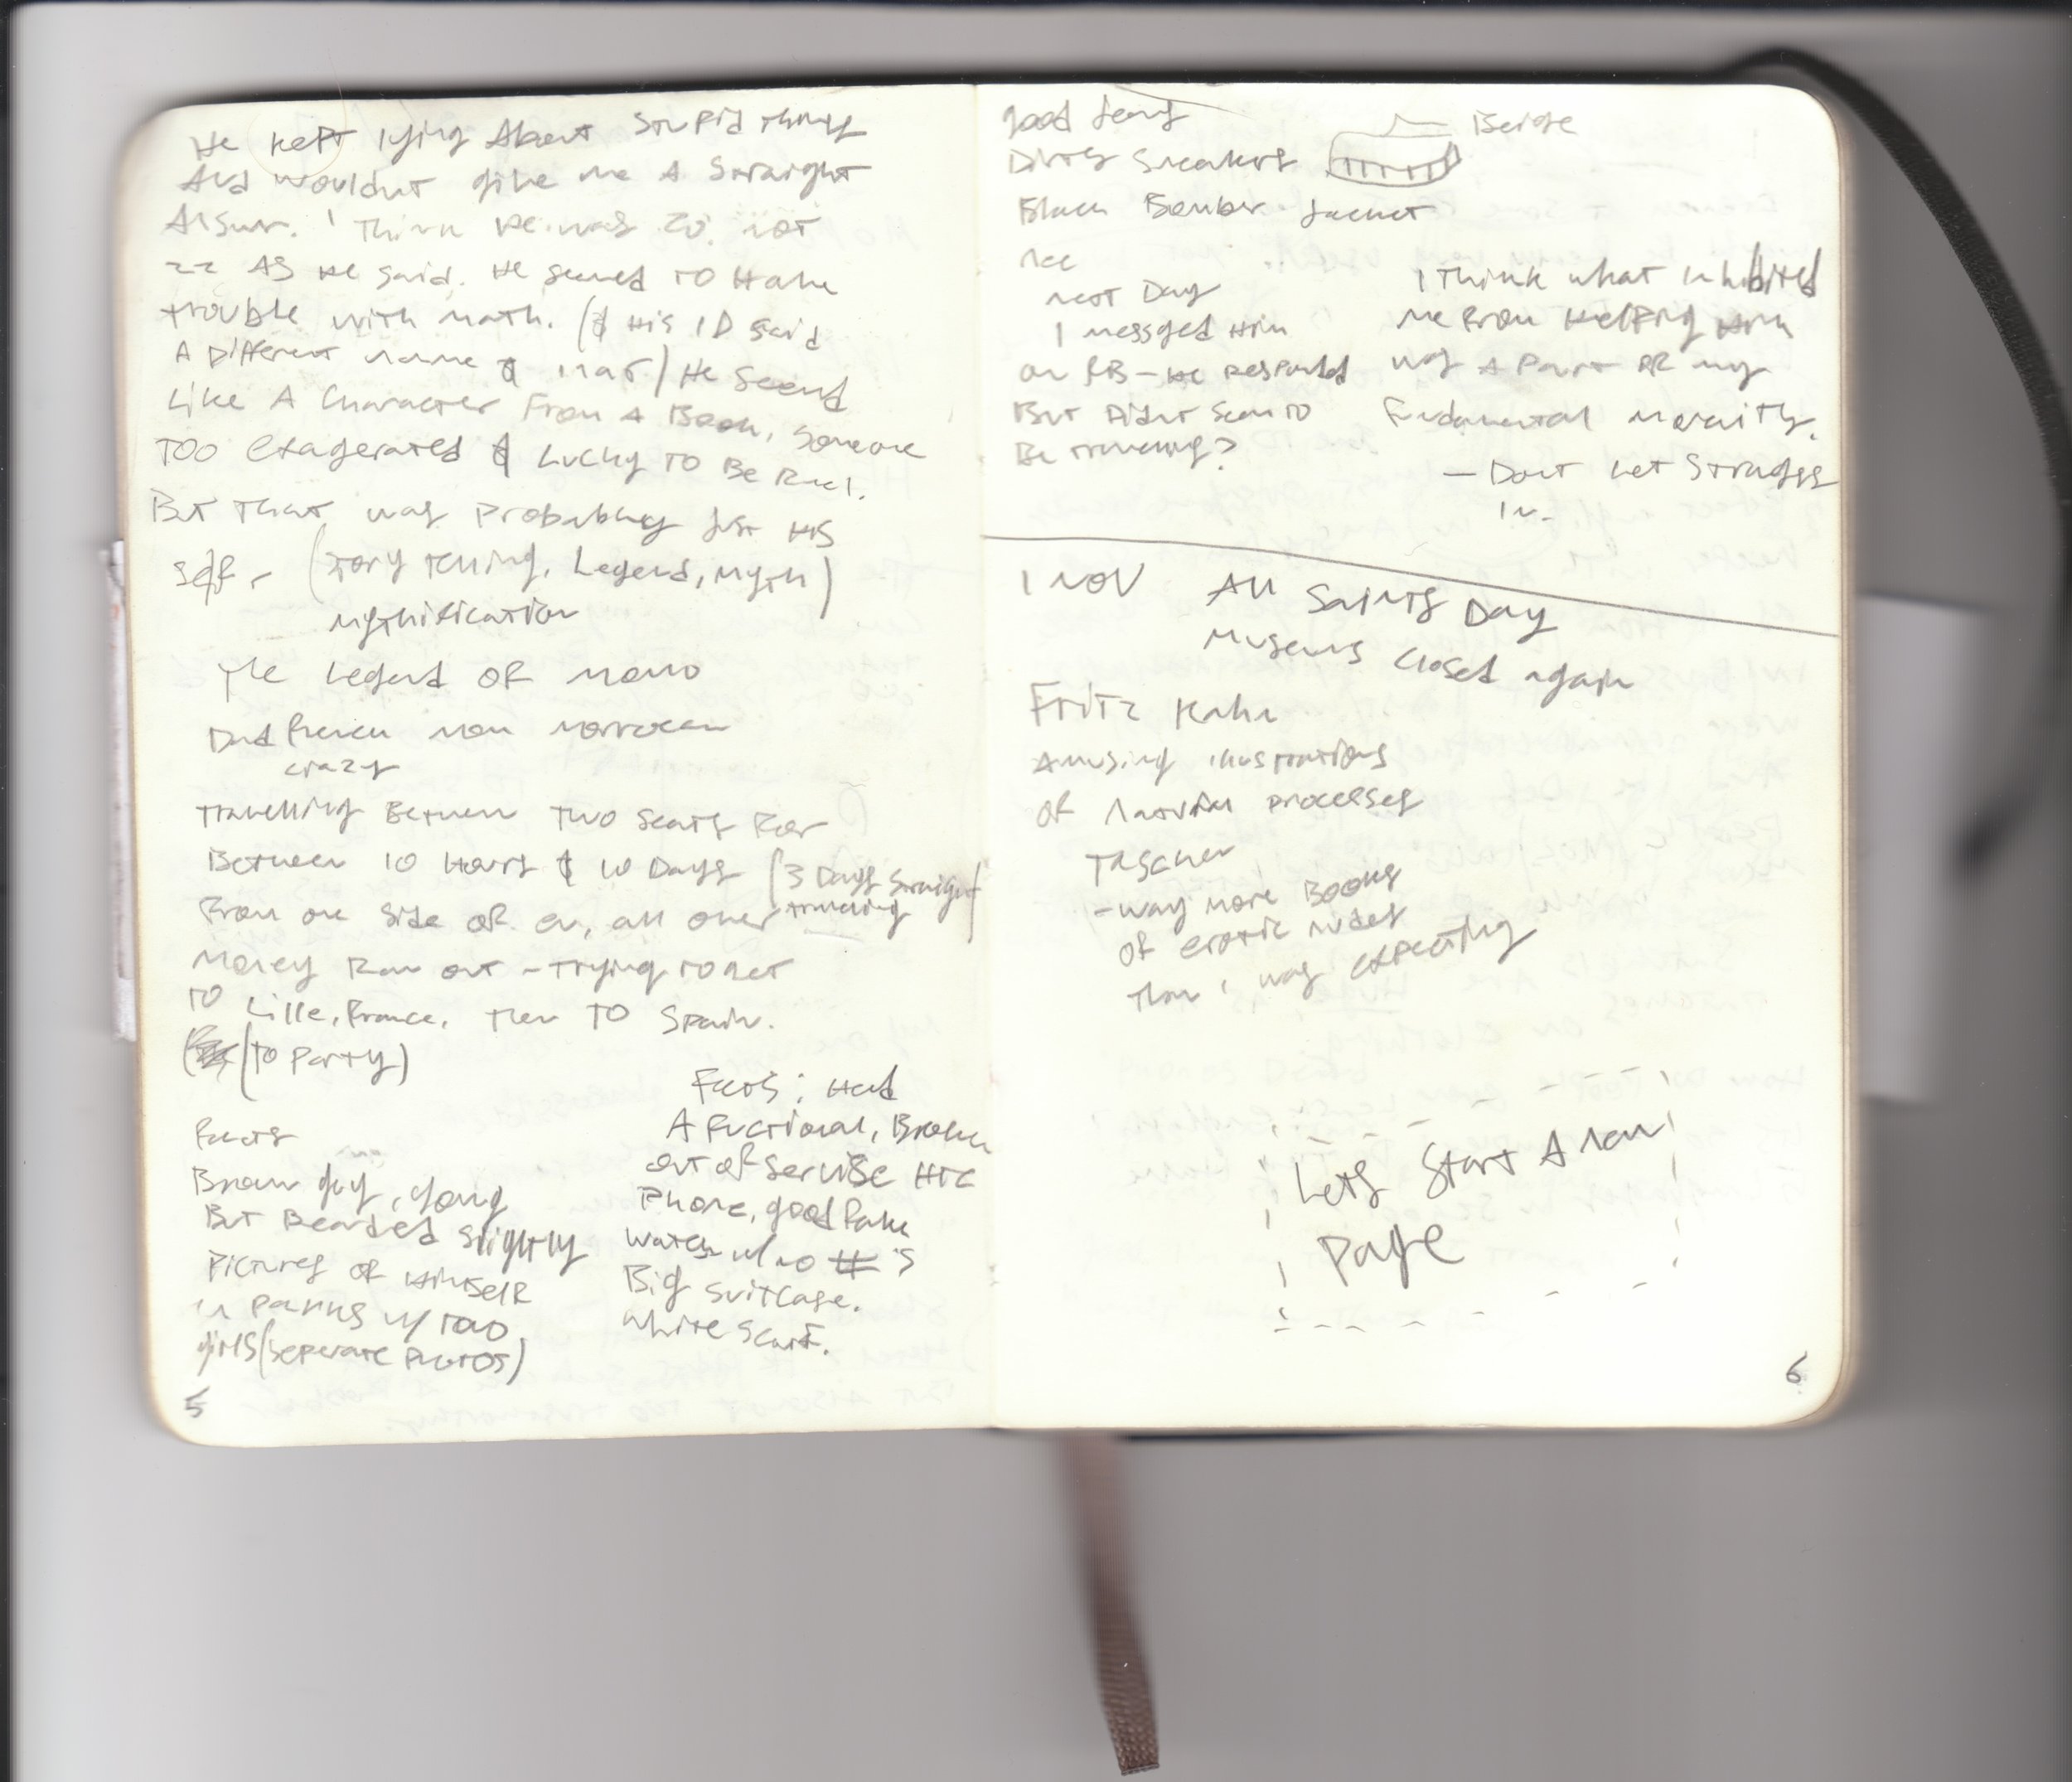 He kept lying About Stupid things
And wouldnt give me A Straight
Answr. I Think he was 20. not
22 AS He said. He seemed TO Have
trouble with math. (& His ID said
A Different name & that) He Seemd
Like A Character From A Book, Someone
TOO exagerated & Lucky TO Be Real.
But That was Probabley just His
self - (Story telling, Legend, Myth)
Mythification
The Legend OF Momo
Dad french mom morrocan
crazy
travelling Between Two Seats For
Between 10 Hours & 10 Days (3 Days Straight
travelling)
From one side of eu, all over
Money Ran out - Trying to get
TO Lille, France, then TO Spain.
(To Party)
facts
Brown guy, young
But Bearded slightly
Pictures of Himself
in parks w/ two
girls (seperate photos)
Facts: Had
A fuctional, Broken
out of Servise HTC
Phone, good fake
watch w/ no #'s
Big Suitcase.
White Scarf.
5
good Jeans
Dirty Sneakers
Beige
Black Bomber Jacket
next Day
I messged Him
on FB - He Respondd
But Didnt Seem TO
Be traveling?
I Think what Inhibited
Me From Helping Him
was A Part OF my
Fundamental Morality.
- Dont Let Strangers
In.
1 NOV All Saints Day
Museums Closed again
Fritz Kahn
Amusing illustrations
of Natural processes
TASCHEN
- way more Books
of erotic nudes
Than I was expecting
Lets Start A new
Page
6